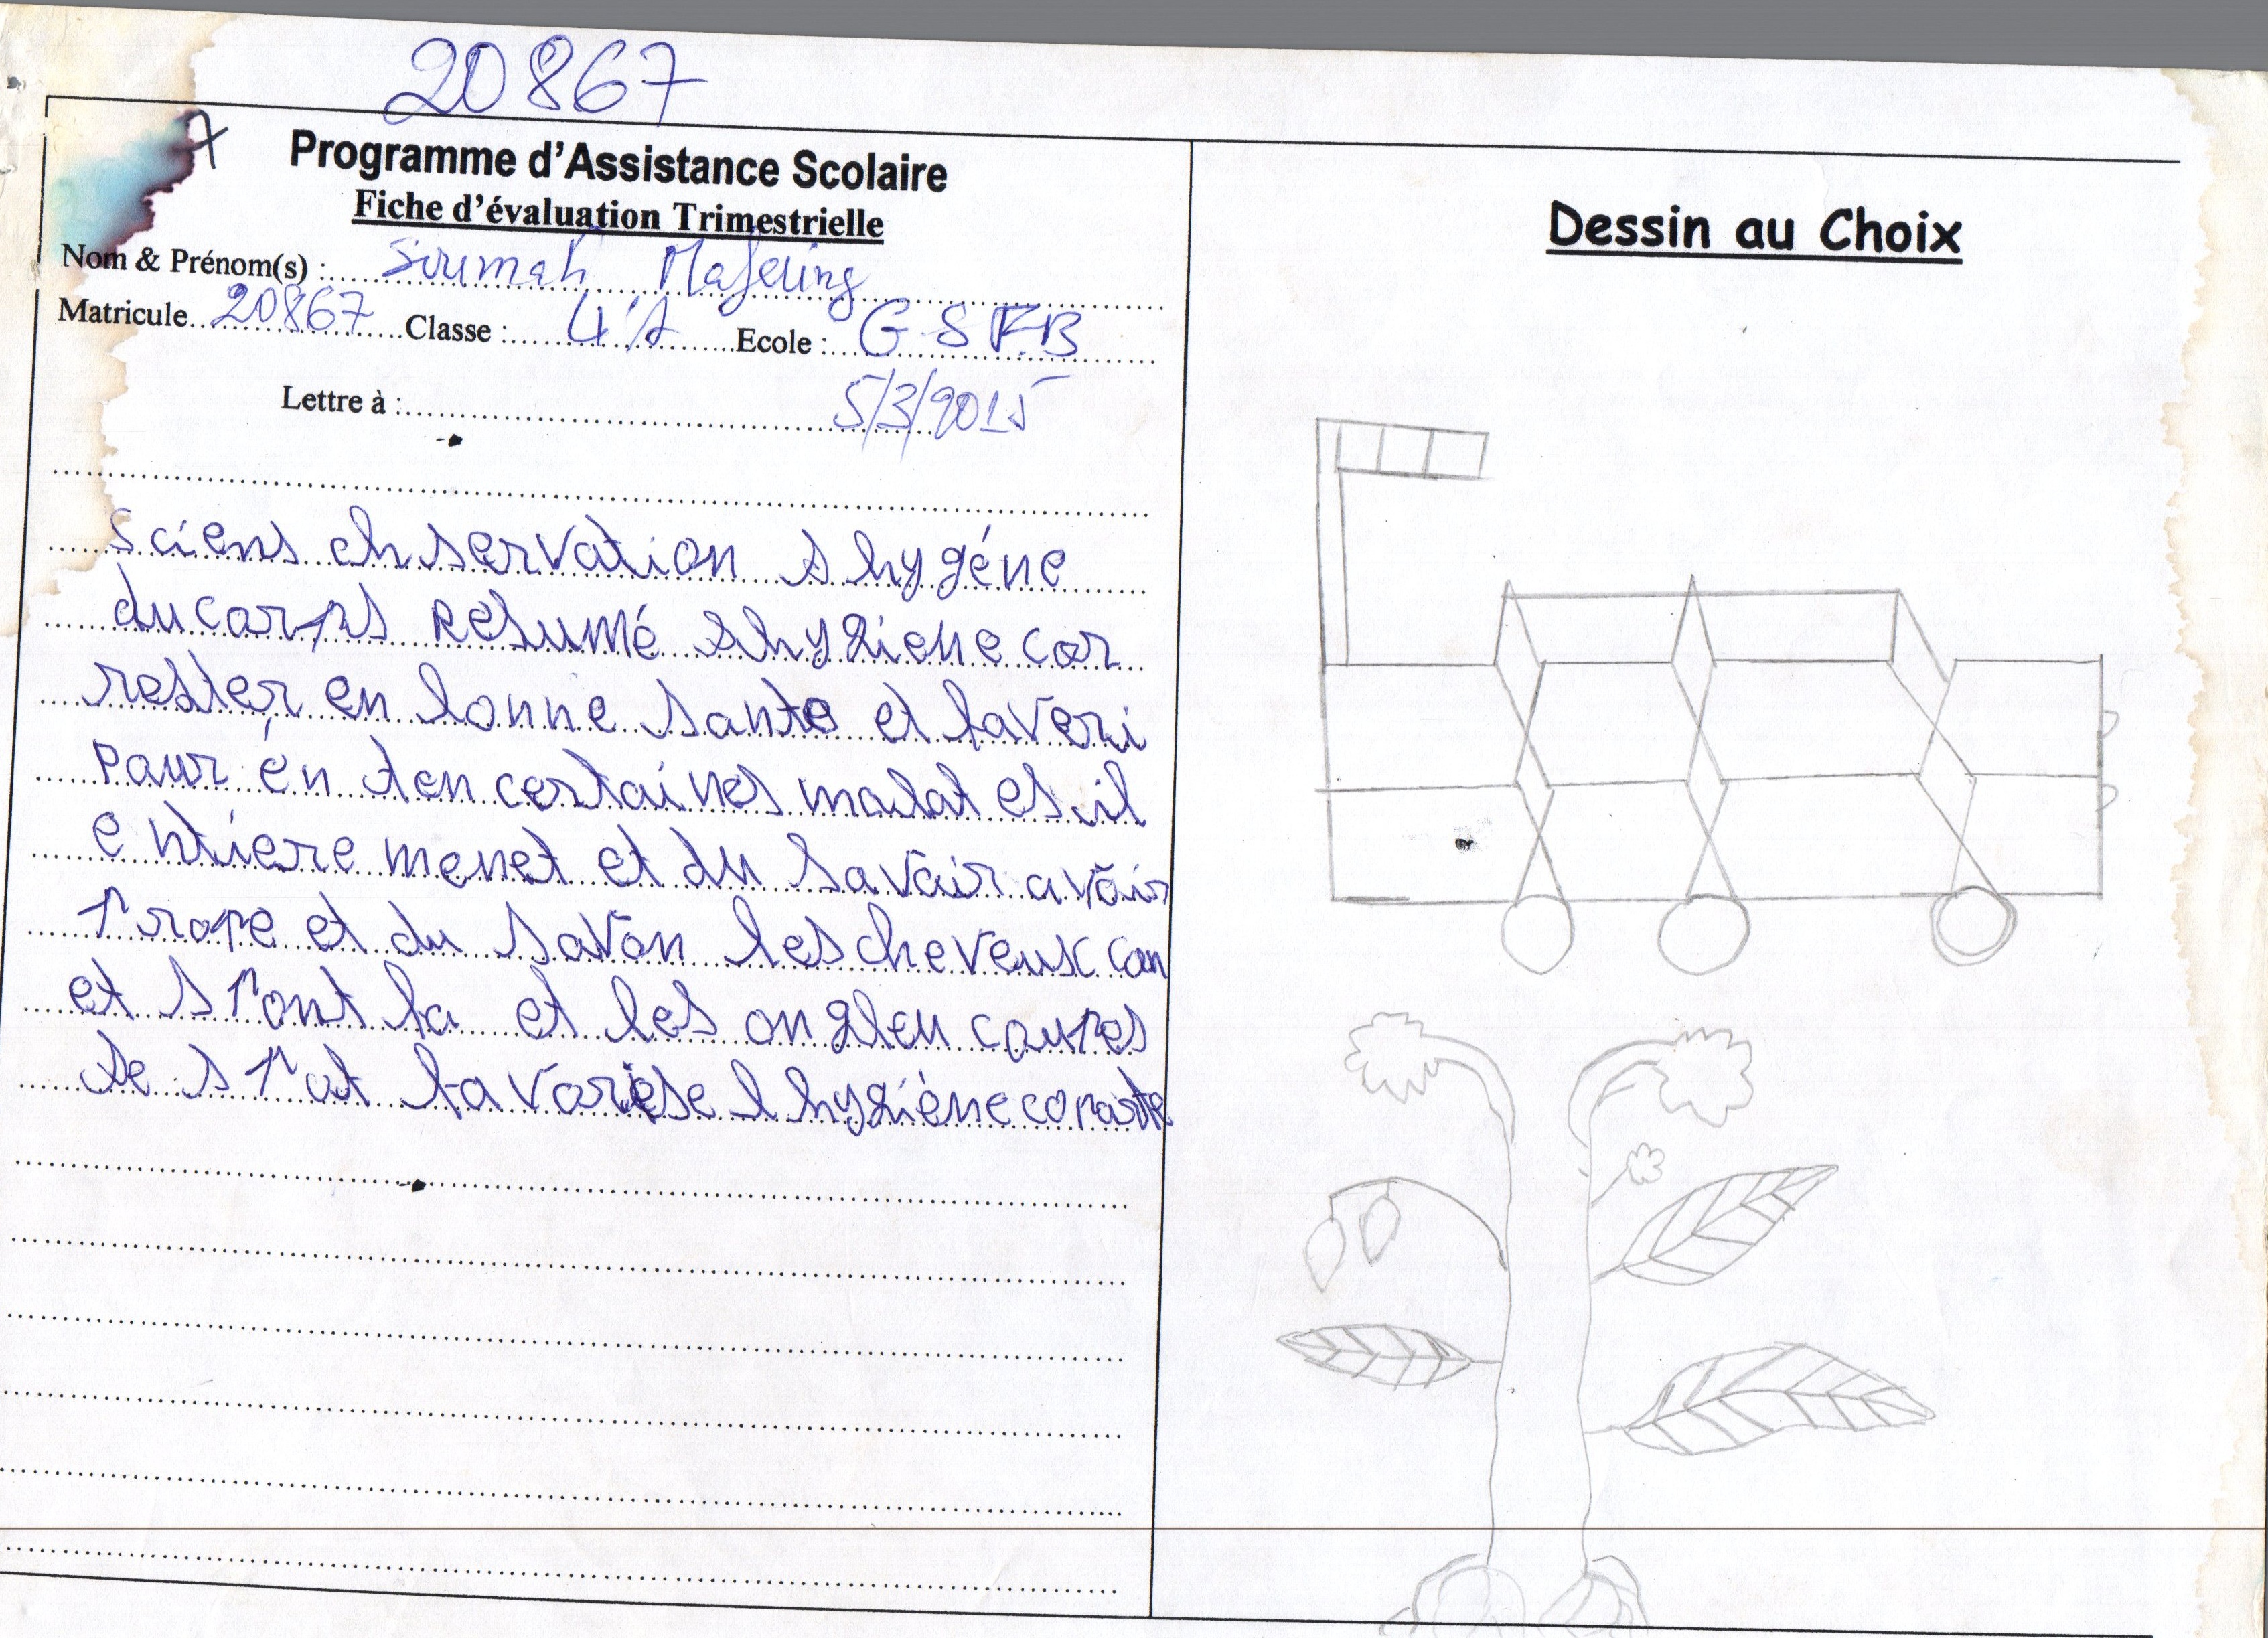 20867
7
Programme d'Assistance Scolaire
Fiche d'évaluation Trimestrielle
Nom & Prénom(s) : Soumah
Matricule 20867 Classe : 4è A Ecole : G S F.B
Lettre à : 5/3/2015
Dessin au Choix
Sciens chservation s hygéne
du corps Résumé shygiene cor
rester en lonne sante et laveri
pour én ten certaines malat es il
entiere menet et du savair avoir
prope et du savon les cheveux can
et s pont la et les ongleu coupes
se s pat la varièse l hygiène coraste